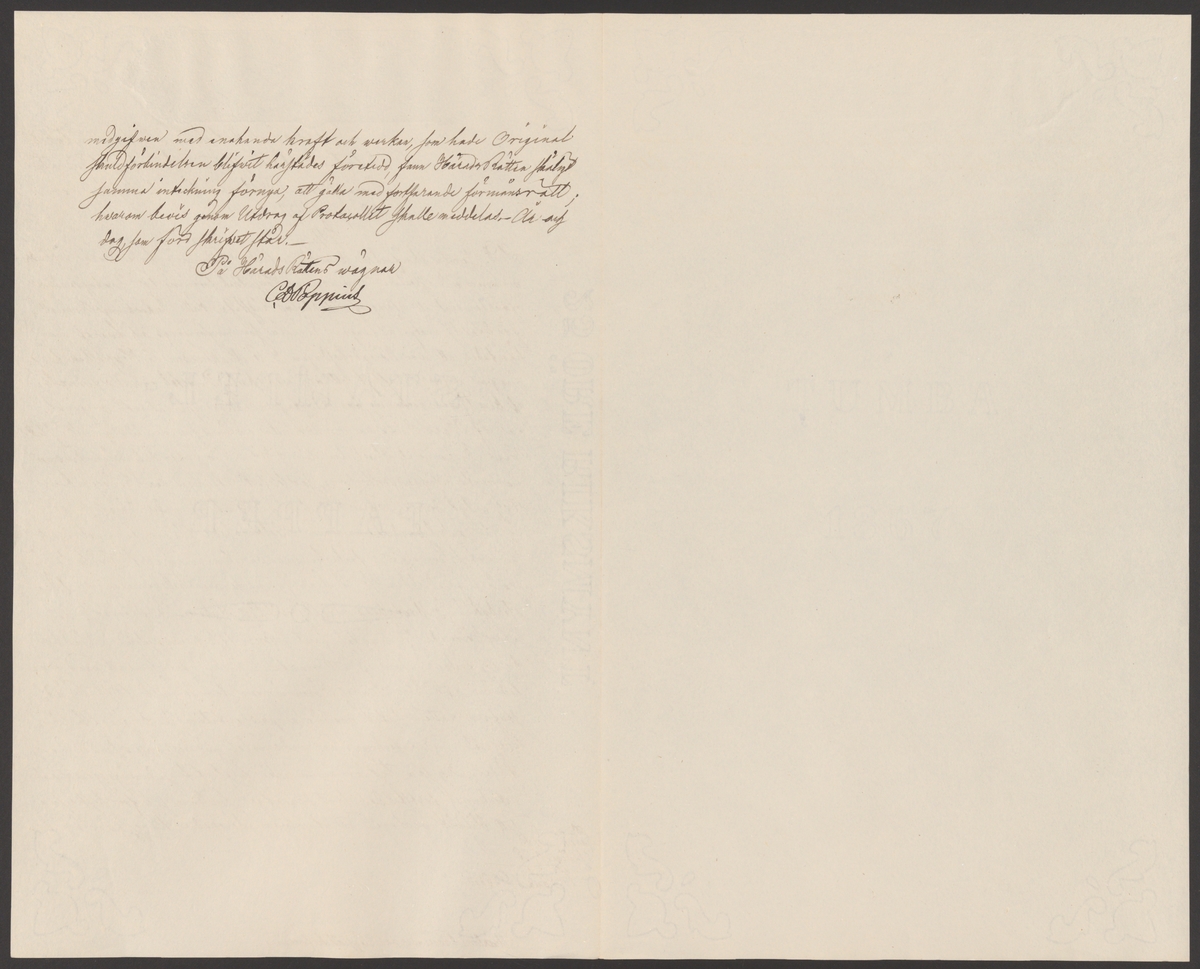 medgifwen med enahanda kraft och werkan, som hade Original
skuldförbindelsen blifvit härstädes företedd, fann HäradsRätten skäligt
samma inteckning förnya, att gälla med fortfarande förmånsrätt;
hvarom bevis genom Utdrag af Protocollet skulle meddelas. – År och
dag, som förr skrifvet står. –
På HäradsRättens wägnar
Poppius